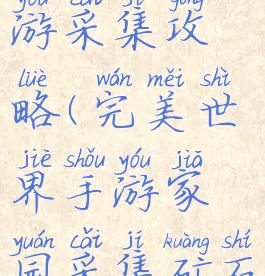 yóu cǎi jí gōng
游采集攻
lüè wán měi shì
略(完美世
jiè shǒu yóu jiā
界手游家
yuán cǎi jí kuàng shí
园采集矿石